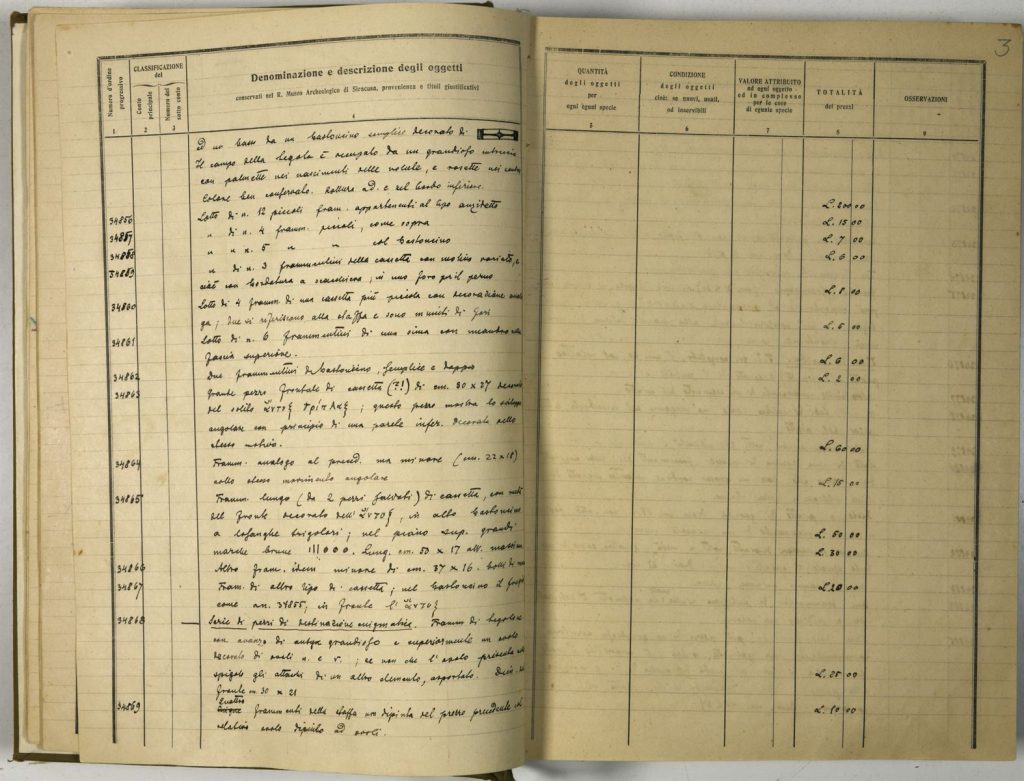 3
Numero d'ordine progressivo
CLASSIFICAZIONE del
Conto principale
Numero del sotto conto
Denominazione e descrizione degli oggetti
conservati nel R. Museo Archeologico di Siracusa, provenienza e titoli giustificativi
QUANTITÀ degli oggetti per ogni egual specie
CONDIZIONE degli oggetti cioè: se nuovi, usati, od inservibili
VALORE ATTRIBUITO ad ogni oggetto od in complesso per le cose di eguale specie
TOTALITÀ dei prezzi
OSSERVAZIONI
1 2 3 4 5 6 7 8 9
ed un basso da un bastoncino semplice decorato di
Il campo della tegola è occupato da un grandioso intreccio
con palmette nei nascimenti delle volute, e rosette nei centri
Colore ben conservato. Rottura ad. e nel bordo inferiore. L. 200 00
34856 Lotto di n. 12 piccoli fram. appartenenti al tipo anzidetto L. 15 00
34857 " di n. 4 framm. piccoli, come sopra L. 7 00
34858 " " n. 5 " " col bastoncino L. 6 00
34859 " di n. 3 frammentini della cassetta con motivo variato, e
cioè con bordatura a scacchiera, in uno foro pr il perno L. 8 00
34860 Lotto di 4 framm. di una cassetta più piccola con decorazione
; due si riferiscono alla staffa e sono muniti di fori L. 5 00
34861 Lotto di n. 6 frammentini di una sima con meandro
fascia superiore. L. 6 00
34862 Due frammentini di bastoncino, semplice e doppio L. 2 00
34863 Grande pezzo frontale di cassetta (?!) di cm. 30 x 27
del solito τρίπλαξ ; questo pezzo mostra lo sviluppo
angolare con principio di una parete infer. decorata nello
stesso motivo. L. 60 00
34864 Framm. analogo al preced. ma minore (cm. 22 x 18)
collo stesso movimento angolare L. 15 00
34865 Framm. lungo (da 2 pezzi saldati) di cassetta, con
del fronte decorato dell' , in alto bastoncino
a losanghe trigolari ; nel piano sup. grandi
marche brune ||| 0 0 0. Lung. cm. 50 x 17 alt. massima L. 50 00
34866 Altro fram. idem minore di cm. 37 x 16. L. 30 00
34867 Fram. di altro tipo di cassetta ; nel bastoncino il fregio
come a n. 34855, in fronte l' L. 20 00
34868 Serie di pezzi di destinazione enigmatica. Framm. di tegolone
con avanzo di grandioso e superiormente un ovolo
decorato di ovoli n. e r. ; se non che l'ovolo presenta
spigolo gli attacchi di un altro elemento, asportato.
fronte m. 30 x 21 L. 25 00
34869 Quattro frammenti della staffa non dipinta del pezzo precedente
relativo ovolo dipinto ad ovoli. L. 10 00